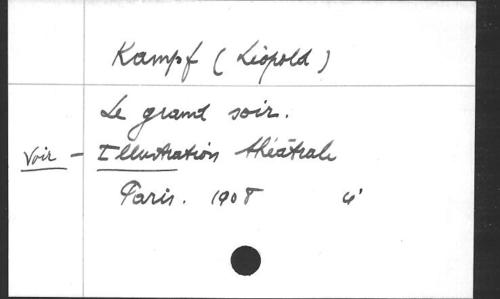 Kampf (Léopold)
Le grand soir.
Voir - Illustration théâtrale
Paris. 1908 4°